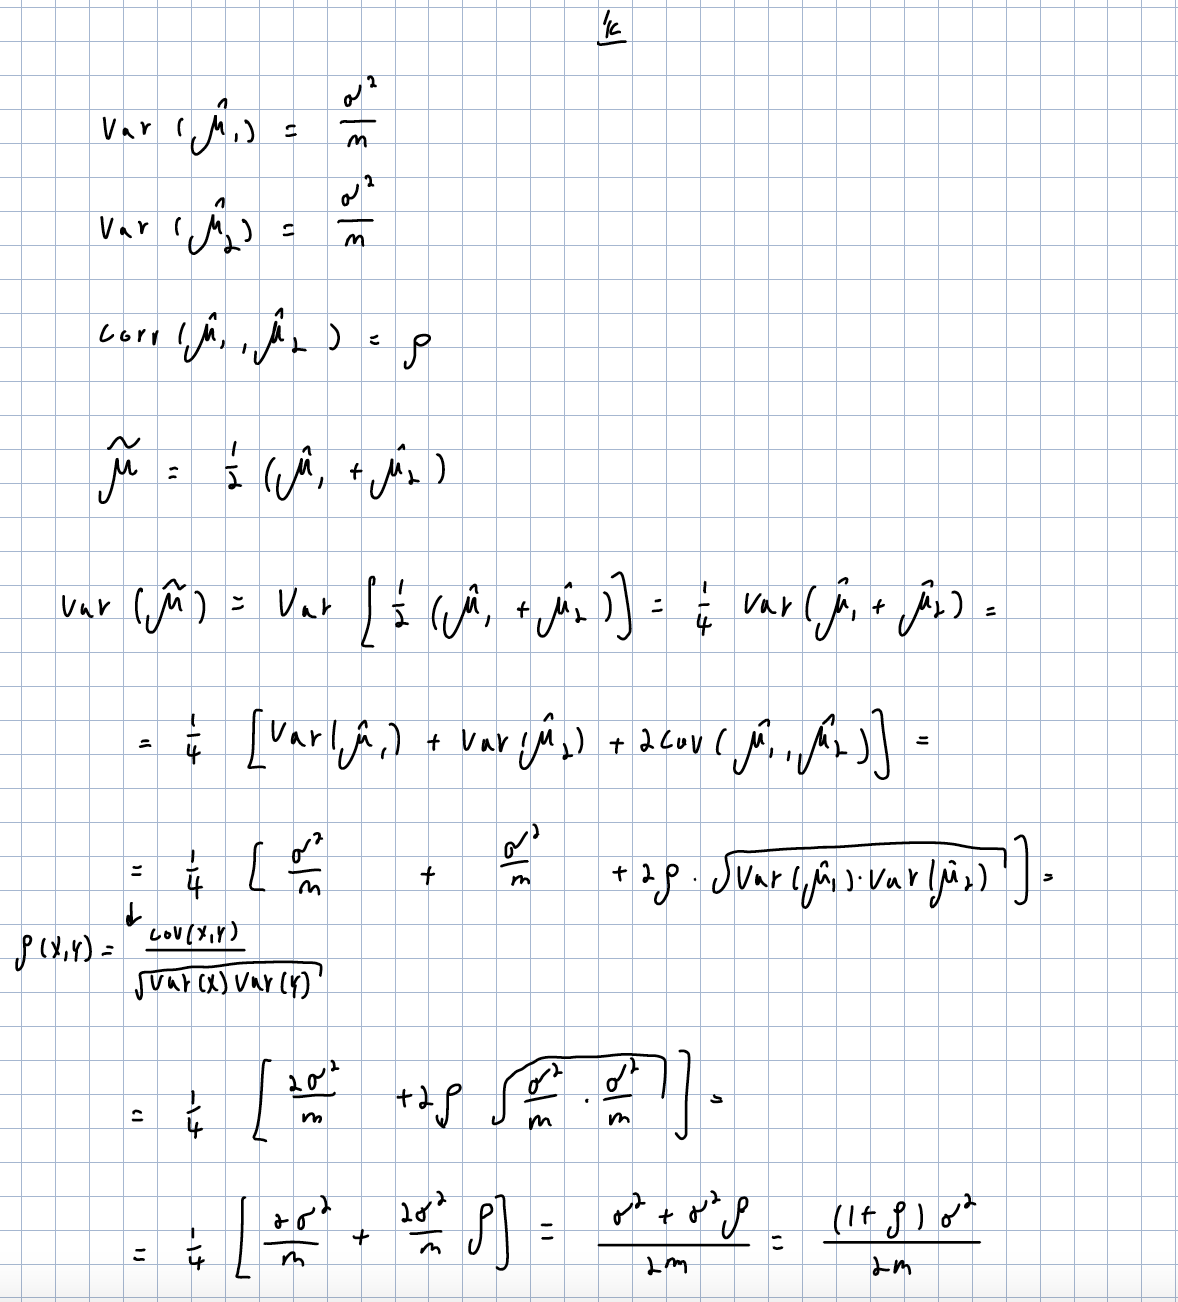 1c
Var (μ̂₁) = σ²/m
Var (μ̂₂) = σ²/m
Corr (μ̂₁, μ̂₂) = ρ
μ̃ = 1/2 (μ̂₁ + μ̂₂)
Var (μ̃) = Var [1/2 (μ̂₁ + μ̂₂)] = 1/4 Var (μ̂₁ + μ̂₂) =
= 1/4 [Var(μ̂₁) + Var(μ̂₂) + 2Cov(μ̂₁, μ̂₂)] =
= 1/4 [σ²/m + σ²/m + 2ρ · √(Var(μ̂₁)·Var(μ̂₂))] =
ρ(X,Y) = Cov(X,Y)/√(Var(X) Var(Y))
= 1/4 [2σ²/m + 2ρ √(σ²/m · σ²/m)] =
= 1/4 [2σ²/m + 2σ²/m ρ] = (σ² + σ²ρ)/2m = (1+ρ)σ²/2m